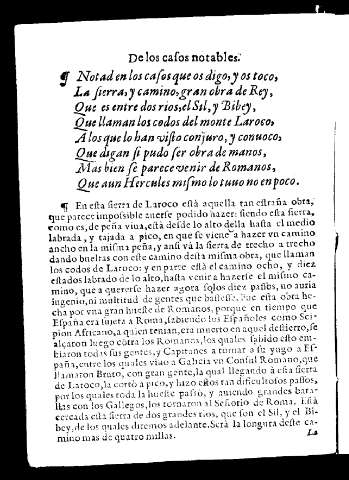 De los casos notables.
¶ Notad en los casos que os digo, y os toco,
La sierra, y camino, gran obra de Rey,
Que es entre dos rios, el Sil, y Bibey,
Que llaman los codos del monte Laroco,
A los que lo han visto conjuro, y conuoco,
Que digan si pudo ser obra de manos,
Mas bien se parece venir de Romanos,
Que aun Hercules mismo lo tuuo no en poco.
¶ En esta sierra de Laroco està aquella tan estraña obra,
que parece impossible auerse podido hazer: siendo esta sierra,
como es, de peña viua, està desde lo alto della hasta el medio
labrada, y tajada a pico, en que se viene a hazer vn camino
ancho en la misma peña, y ansi và la sierra de trecho a trecho
dando bueltas con este camino desta misma obra, que llaman
los codos de Laroco: y en parte està el camino ocho, y diez
estados labrado de lo alto, hasta venir a hazerse el mismo ca-
mino, que a quererse hazer agora solos diez passos, no auria
ingenio, ni multitud de gentes que bastesse. Fue esta obra he-
cha por vna gran hueste de Romanos, porque en tiempo que
España era sujeta a Roma, sabiendo los Españoles como Sci-
pion Africano, a quien tenian, era muerto en aquel destierro, se
alçaron luego cõtra los Romanos, los quales sabido esto em-
biaron todas sus gentes, y Capitanes a tornar a su yugo a Es-
paña, entre los quales vino a Galicia vn Consul Romano, que
llamaron Bruto, con gran gente, la qual llegando à esta sierra
de Laroco, la cortò a pico, y hizo estos tan dificultosos passos,
por los quales toda la hueste passò, y auiendo grandes bata-
llas con los Gallegos, los tornaron al Señorio de Roma. Està
cercada esta sierra de dos grandes rios, que son el Sil, y el Bi-
bey, de los quales diremos adelante. Serà la longura deste ca-
mino mas de quatro millas.
La